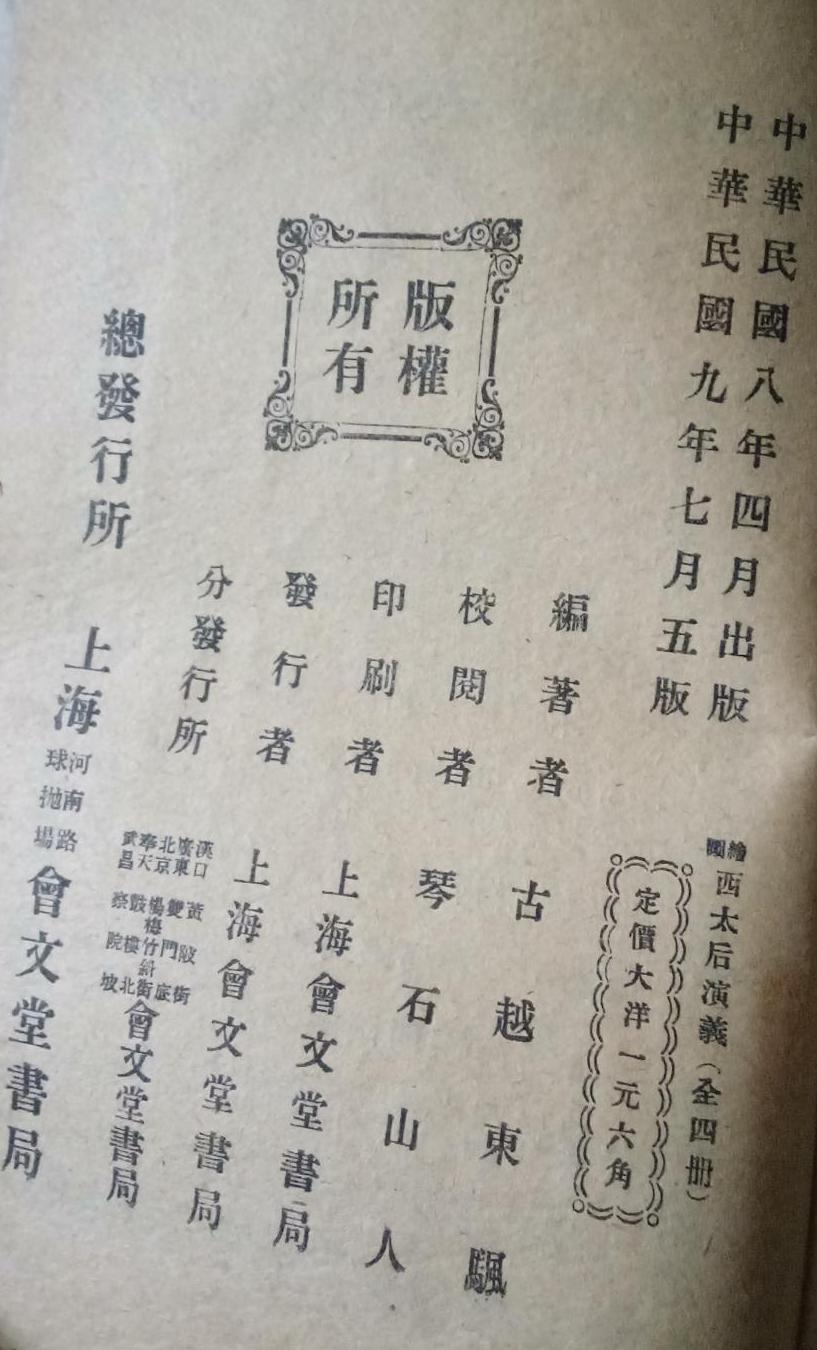 中華民國八年四月出版
中華民國九年七月五版
繪圖西太后演義（全四册）
定價大洋一元六角
版權
所有
編著者 古越東颿
校閱者 琴石山人
印刷者 上海會文堂書局
發行者 上海會文堂書局
分發行所
漢口黃陂街
廣東雙門底
北京楊梅竹斜街
奉天鼓樓北
武昌察院坡
會文堂書局
總發行所 上海河南路抛球場會文堂書局